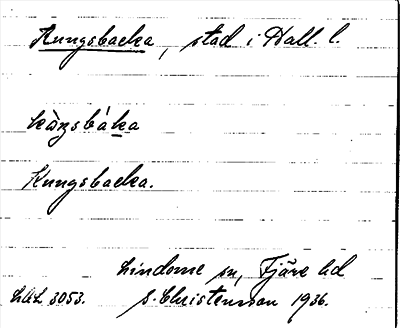 Kungsbacka, stad i Hall. l.
kàŋsbáka
Kungsbacka.
Lindome sn, Fjäre hd
LUL 3053. S. Christensson 1936.